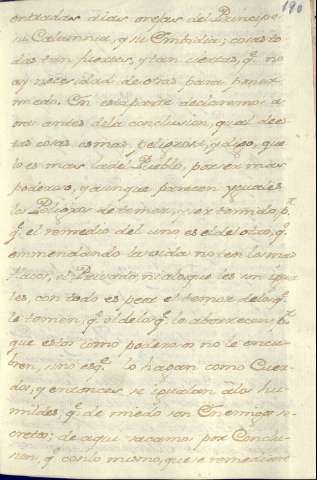 190
entradas á las orejas del Principe
su Calumnia, y su Embidia; cosas to
das tan fuertes, y tan ciertas, q. no
ay necesidad de otras para poner
miedo. En esta parte declaremos a
ora antes de la conclusion, qual de es
tas cosas es mas peligrosa, y digo, que
lo es mas la del Pueblo, por ser mas
poderoso, y aunque parecen yguales
los Peligros de temor, y ser temido, p.
q. el remedio del uno es el del otro, q.
emmendando la vida no teme mas
Privado, ni a los que les son ygua
les, con todo es peor el temor de los q.
le temen, q. el de los q. le aborrecen; p.
que estos como poderosos no le encu
bren, sino es q. lo hagan como Cuer
dos, y entonces se igualan á los hu
mildes q. de miedo son Enemigos se
cretos; de aqui sacamos por Conclu
sion, q. con lo mismo, que se remedia